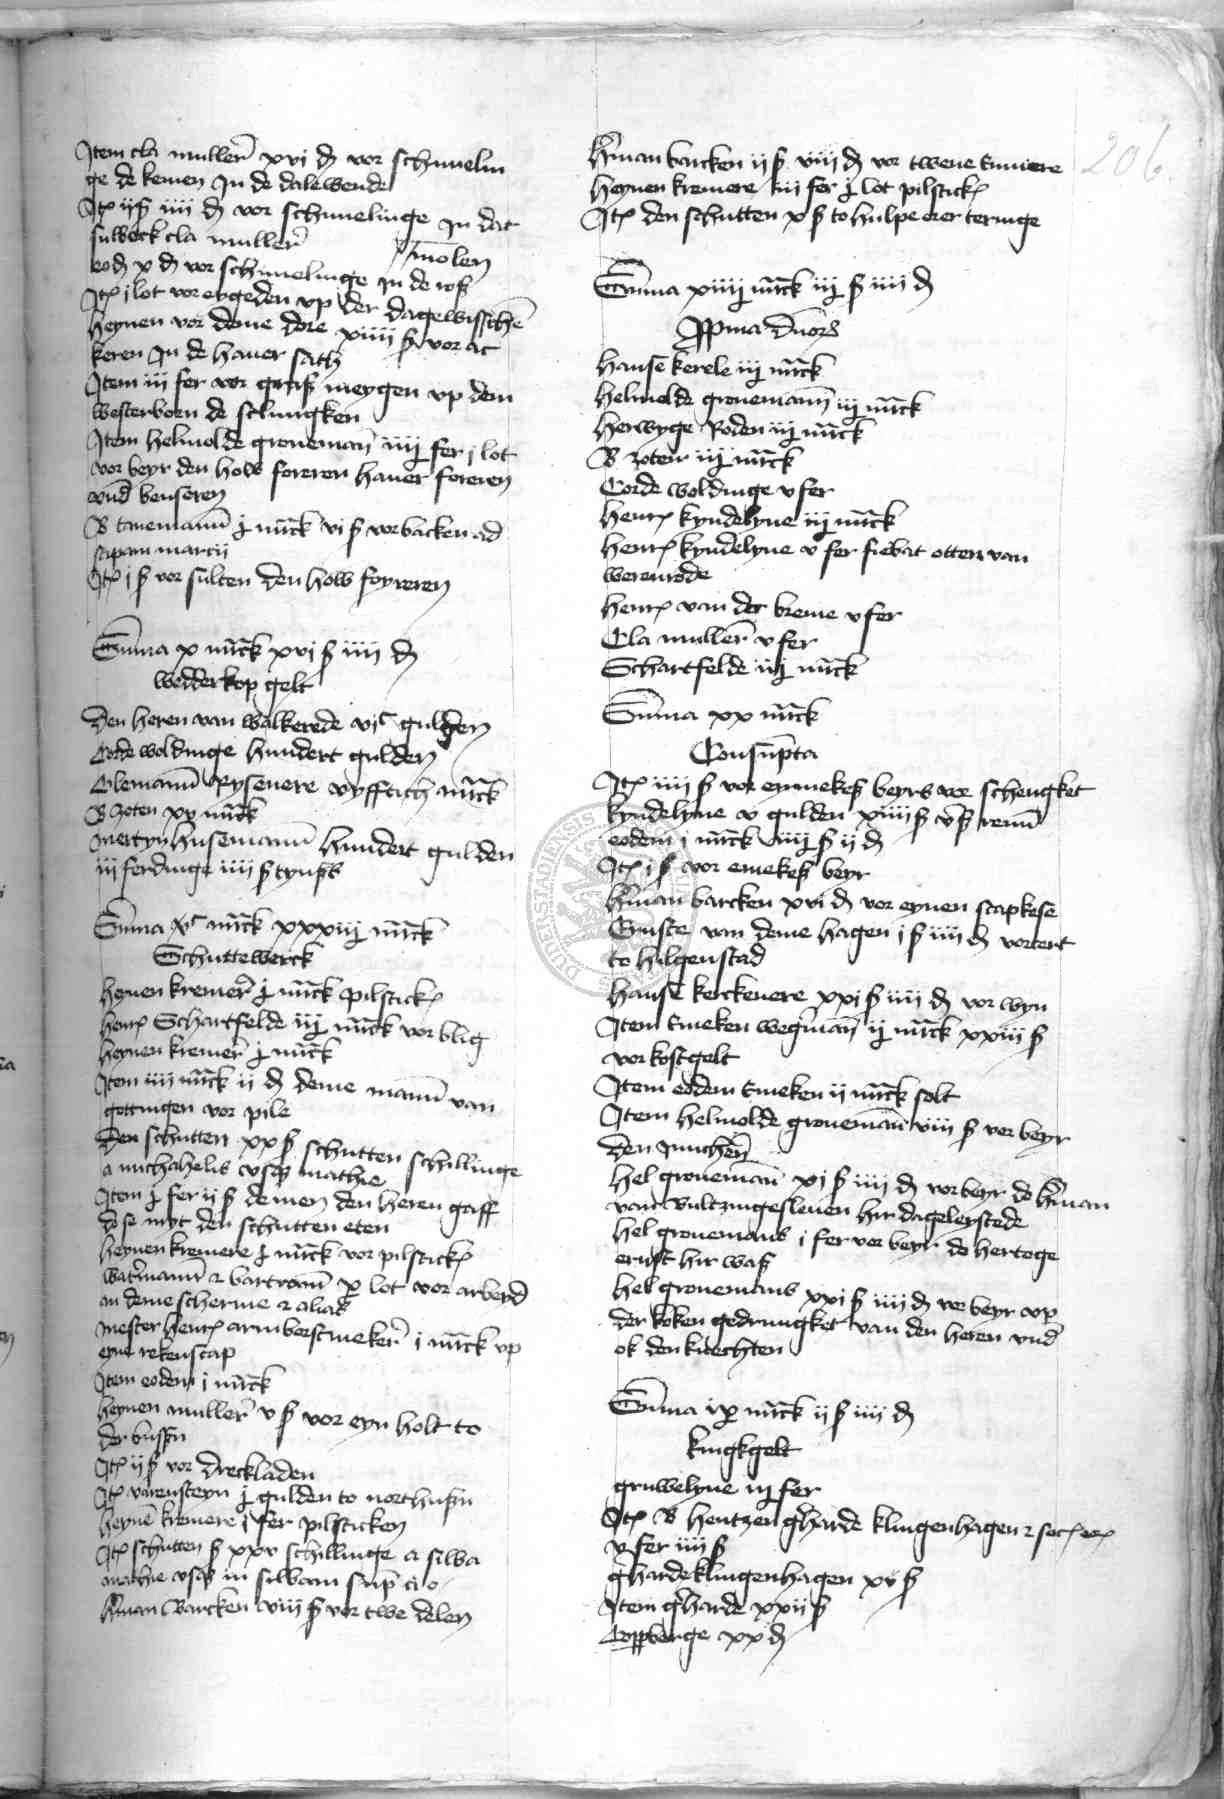 Item cla muller xvi d vor schmelin
ge de kemen In de dalewende
It ij ß iiii d vor schmelinge In dat
sulweck cla muller
eod x d vor schmelinge In de molen
It j lot vor eygeden vp der dagewisschen
heynen vor deme dore xiiii ß vor ac
keren In de hauer sath
Item iii fer vor graß meygen vp dem
westerborn de schungken
Item helmolde groneman iiii fer j lot
vor beyr den how foreren hauer foreren
vnd benseren
B tinemann j marck vi ß vor backen ad
marcii
It j ß vor sulten den how foyreren
Summa x marck xvj ß iiii d
wedderkop gelt
Den heren van walkerede vjc gulden
Corde woldinge hundert gulden
Colemann Rysenere vyfftich marck
B zoten xv marck
mertyn husemann hundert gulden
iii ferdinge iiii ß tynß
Summa vc marck xxxiij marck
Schuttewerck
heynen kremer j marck pilstick
henr Schartfelde iij marck vor blig
heynen kremer j marck
Item iiii marck ii d deme mann van
gottingen vor pile
Den schutten xx ß schutten schillinge
a michahelis vsque mathie
Item j fer ij ß de men den heren gaff
do se myt den schutten eten
heynen kremere j marck vor pilstick
watermann & bartram x lot vor arbeyd
an deme scherme & alias
mester henr armborstmeker i marck vp
eyne rekenscap
Item eodem j marck
heynen muller v ß vor eyn holt to
der bussen
It ij ß vor dreckladen
It varensteyn j gulden to northusen
heyne kremere j fer pilsticken
It schutten ß xxv schillinge a silva
mathie vsque in silvam
herman Barcken viii ß vor twe delen
206.
herman barcken ij ß viii d vor twene emmere
heynen kremere iii fer j lot pilstick
It den schutten x ß to hulpe erer teringe
Summa xiiij marck iij ß iiii d
dnor
Hanse kerele iij marck
helmolde gronemann iij marck
herwyge Roden iij marck
B zoten iij marck
Corde woldinge v fer
henr kyndelyne iij marck
henr kyndelyne v fer fiebat otten van
werenrode
henr van der breme v fer
Cla muller v fer
Schartfelde iij marck
Summa xx marck
Consumpta
It iiii ß vor eymekes beyrs vor schengket
kyndelyne v gulden xiiii ß
eodem i marck iiii ß ij d
It i ß vor emekes beyr
herman barcken xvi d vor eynen scapkese
Ernste van deme hagen i ß iiii d vortert
to hilgenstad
Hanse kerckenere xxi ß iiii d vor wyn
Item Emeken wegman ij marck xxiii ß
vor kostgelt
Item eodem Emeken ij marck solt
Item helmolde groneman viii ß vor beyr
den
hel groneman xi ß iiii d vor beyr do herman
van bultzingesleuen hir dageleystede
hel gronemans i fer vor beyr do hertoge
ernst hir was
hel gronemans xxi ß iiii d vor beyr vp
der koken gedrungket van den heren vnd
ok den knechten
Summa ix marck ij ß iiii d
kuigkgelt
gruwelyne iij fer
It B hentzen gherde klingenhagen &
v fer iiii ß
gharde klingenhagen xv ß
Item gherde xxii ß
Coppberge xx d